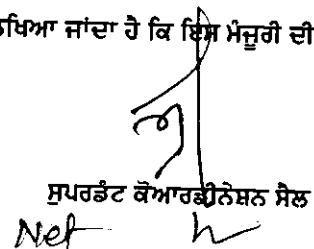 ਲਿਖਿਆ ਜਾਂਦਾ ਹੈ ਕਿ ਇਸ ਮੰਜੂਰੀ ਦੀ
ਸੁਪਰਡੰਟ ਕੋਆਰਡੀਨੇਸ਼ਨ ਸੈਲ
Net